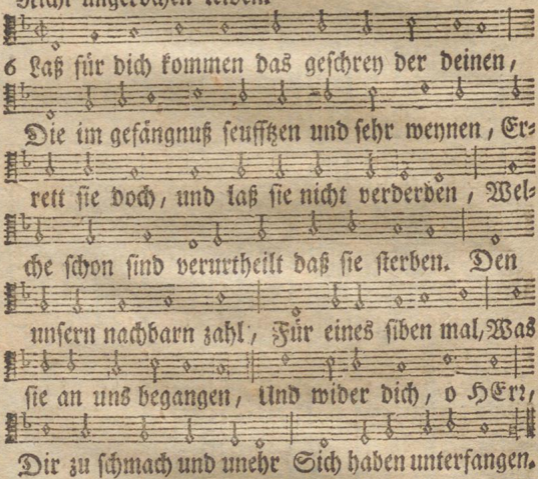 6 Laß für dich kommen das geschrey der deinen,
Die im gefängnuß seufftzen und sehr weynen, Er-
rett sie doch, und laß sie nicht verderben, Wel-
che schon sind verurtheilt daß sie sterben. Den
unsern nachbarn zahl, Für eines siben mal, Was
sie an uns begangen, Und wider dich, o HErr,
Dir zu schmach und unehr Sich haben unterfangen.